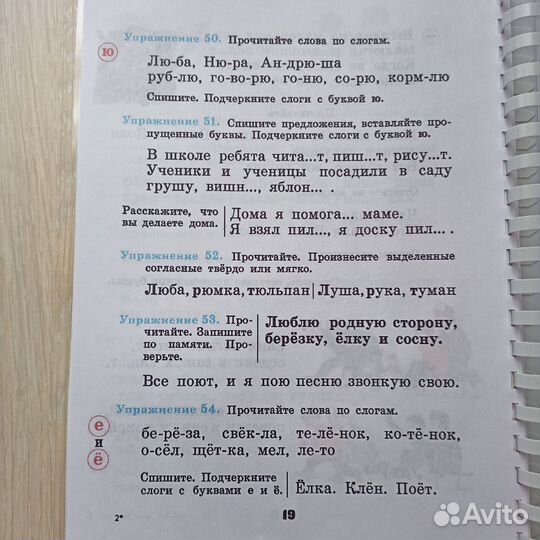 Упражнение 50. Прочитайте слова по слогам.
ю
Лю-ба, Ню-ра, Ан-дрю-ша
руб-лю, го-во-рю, го-ню, со-рю, корм-лю
Спишите. Подчеркните слоги с буквой ю.
Упражнение 51. Спишите предложения, вставляйте про-
пущенные буквы. Подчеркните слоги с буквой ю.
В школе ребята чита...т, пиш...т, рису...т.
Ученики и ученицы посадили в саду
грушу, вишн..., яблон... .
Расскажите, что
вы делаете дома.
Дома я помога... маме.
Я взял пил..., я доску пил... .
Упражнение 52. Прочитайте. Произнесите выделенные
согласные твёрдо или мягко.
Люба, рюмка, тюльпан | Луша, рука, туман
Упражнение 53. Про-
читайте. Запишите
по памяти. Про-
верьте.
Люблю родную сторону,
берёзку, ёлку и сосну.
Все поют, и я пою песню звонкую свою.
Упражнение 54. Прочитайте слова по слогам.
е
и
ё
бе-рё-за, свёк-ла, те-лё-нок, ко-тё-нок,
о-сёл, щёт-ка, мел, ле-то
Спишите. Подчеркните
слоги с буквами е и ё.
Ёлка. Клён. Поёт.
2*
19
Avito